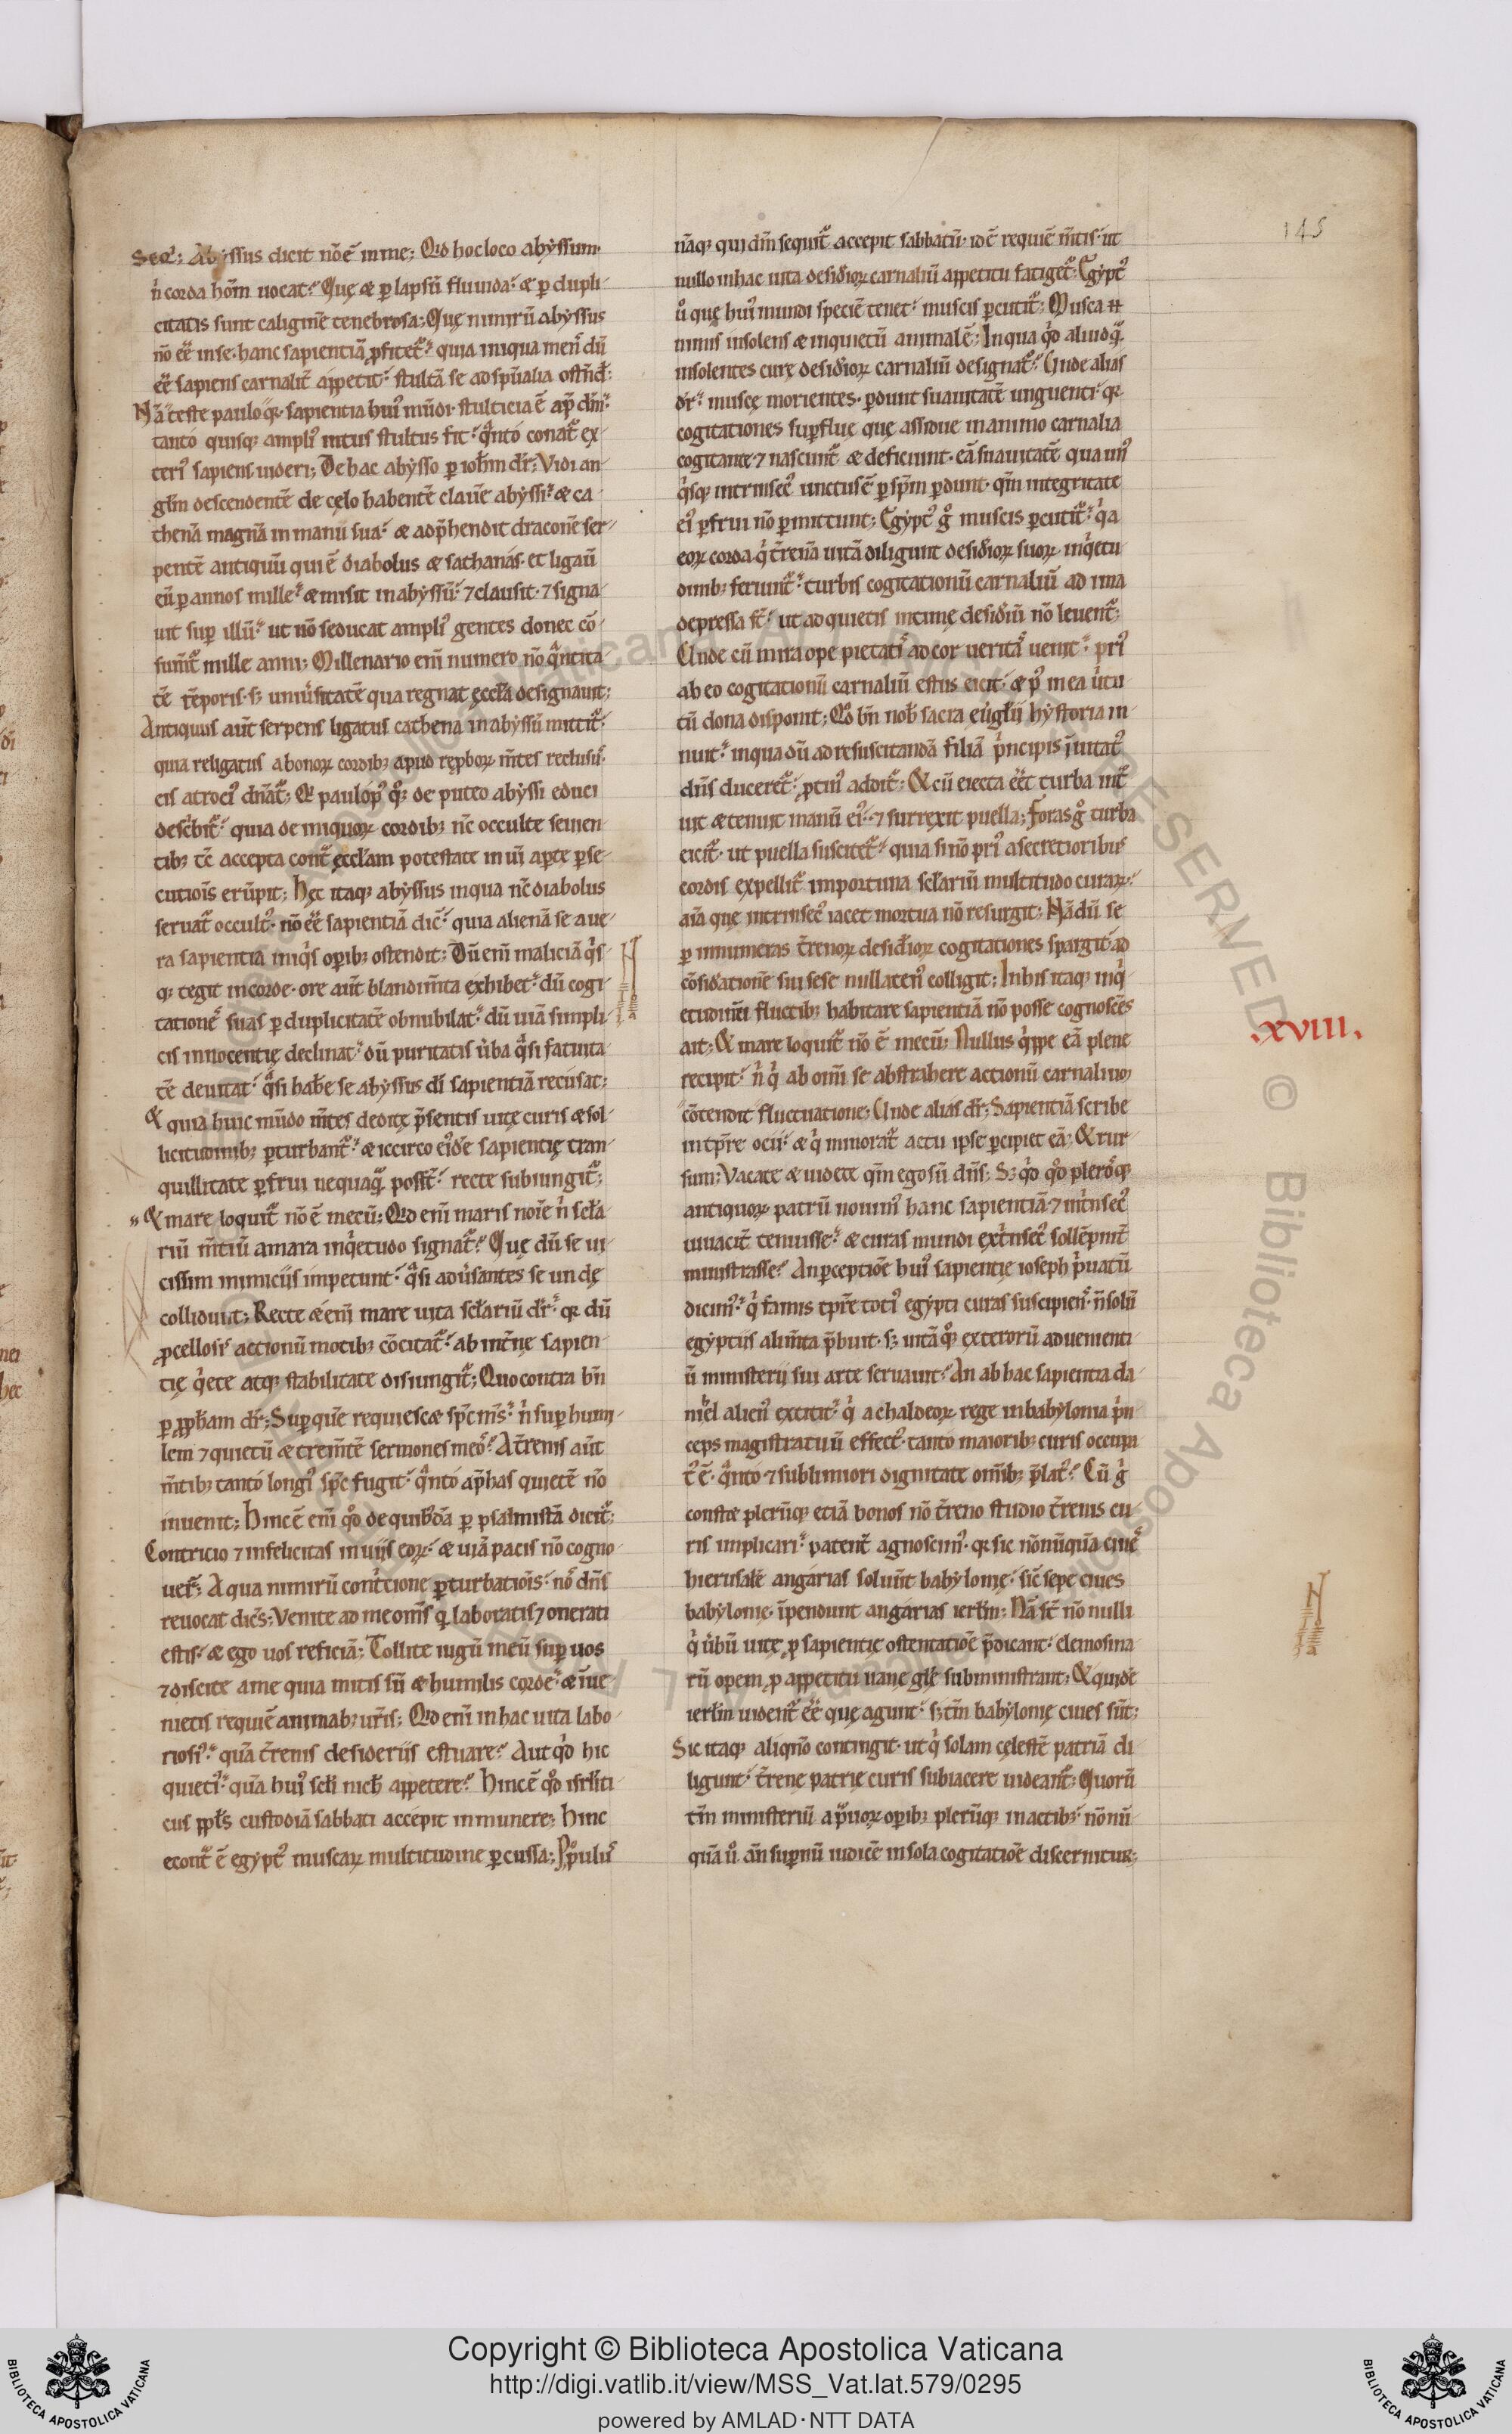 145
Seq̄t; Abyssus dicit nō ē in me; Qd hoc loco abyssum·
n̄ corda hom̄ uocat? Quę & p lapsū fluuida? & p dupli
citatis sunt caliginē tenebrosa; Quę nimirū abyssus
nō eē in se hanc sapientiā pfitet̃? quia iniqua men̄ dū
eē sapiens carnalit̃ appetit? stultā se ad spūalia ostn̄d;
Nā teste paulo qr sapientia hui' mūdi stulticia ē ap̄ dm̄?
tanto quisq; ampli' intus stultus fit? q̄nto conat̃ ex
teri' sapiens uideri; De hac abysso p ioh̄m dr̄; Vidi an
gl̄m descendentē de cęlo habentē clauē abyssi? & ca
thenā magnā in manu sua? & adp̄hendit draconē ser
pentē antiquū qui ē diabolus & sathanas· et ligau̅
eū p annos mille? & misit in abyssū? ⁊ clausit· ⁊ signa
uit sup illū? ut nō seducat ampli' gentes donec cō
sum̄t̃ mille anni; Millenario eni̅ numero nō q̄ntita
tē tēporis· s; uniu̅sitatē qua regnat ęccl̄a designauit;
Antiquus aut̅ serpens ligatus cathena in abyssū mittit̃?
quia religatus a bonoꝝ cordib; apud repboꝝ m̄tes reclusus
eis atroci' dn̄at̃; Qi paulop' q°; de puteo abyssi educi
desc̄bit̃? quia de iniquoꝝ cordib; nc̄ occulte seuien
tib; tc̄ accepta cont̃ ęccl̄am potestate in uı̅ apte pse
cutiois erūpit; Hęc itaq; abyssus in qua nc̄ diabolus
seruat̃ occult'· nō eē sapientiā dic̄? quia alienā se a ue
ra sapientia iniq̄s opib; ostendit; Dū eni̅ maliciā q̄s
q; tegit in corde· ore aut̅ blandim̄ta exhibet? dū cogi
tationes suas p duplicitatē obnubilat? dū uiā simpli
cis innocentię declinat? dū puritatis u̅ba q̄si fatuita
tē deuitat? q̄si hab̄e se abyssus di̅ sapientiā recusat;
& quia huic mūdo m̄tes deditę p̄sentis uitę curis & sol
licitudinib; pturbant̃? & iccirco ei'de sapientię tran
quillitate pfrui nequaq̄ poss̃t? recte subiungit̃;
" & mare loquit̃ nō ē mecū; Qd eni̅ maris noı̅e n̄ scl̄a
riū m̄tiū amara inq̄etudo signat̃? Quę dū se ui
cissim inimiciis impetunt? q̄si adu̅santes se undę
collidunt; Recte & eni̅ mare uita scl̄ariū dr̄? qr dū
pcellosis actionū motib; cōcitat̃? ab int̄nę sapien
tię q̄ete atq; stabilitate disiungit̃; Quo contra bn̄
p pp̄ham dr̄; Sup quē requiescet spc̄ m̄s? n̄ sup humi
lem ⁊ quietū & trem̄tē sermones meos? A t̄renis aut̅
m̄tib; tanto longi' spc̄ fugit? q̄nto ap̄ has quietē nō
inuenit; Hinc ē eni̅ qd de quib'dā p psalmistā dicit̃;
Contricio ⁊ infelicitas in uiis eoꝝ? & uiā pacis nō cogno
uer̄; A qua nimirū cont̄cione pturbatiōis? nos dn̄s
reuocat dicēs; Venite ad me om̄s q̄ laboratis ⁊ onerati
estis? & ego uos reficiā; Tollite iugū meū sup uos
⁊ discite a me quia mitis sū & humilis corde? & ı̅ue
nietis requiē animab; ur̄is; Qd eni̅ in hac uita labo
riosi'? quā t̄renis desideriis estuare? Aut qd hic
quieti'? quā hui' scl̄i nich̄ appetere? Hinc ē qd isrl̄iti
cus ppl̄s custodiā sabbati accepit in munere; Hinc
econt̃ ē egypt' muscaꝝ multitudine pcussa; Populus
nāq; qui dm̄ sequit̃ accepit sabbatū· id ē requiē m̄tis? ut
nullo in hac uita desid̄ioꝝ carnaliū appetitu fatiget̃; Egypt'
u° quę hui' mundi speciē tenet? muscis pcutit̃; Musca ++
nimis insolens & inquietū animal ē; In qua qd aliud q̄
insolentes curę desid̄ioꝝ carnaliū designat̃? Unde alias
dr̄? muscę morientes· pdunt suauitatē unguenti? qr
cogitationes supfluę quę assidue in animo carnalia
cogitante ⁊ nascunt̃ & deficiunt· eā suauitatē qua un'
q̄sq; intrinsec' unctus ē p spm̄ pdunt· qm̄ integritate
ei' pfrui nō pmittunt; Egypt' g° muscis pcutit̃? q̄a
eoꝝ corda q̄ t̄renā uitā diligunt desid̄ioꝝ suoꝝ inq̄etu
dinib; feriunt̃? turbis cogitationū carnaliū ad ima
depressa st̄? ut ad quietis intimę desid̄iū nō leuent̃;
Unde cū mira ope pietatis ad cor ueritas uenit? pri'
ab eo cogitationū carnaliū estus eicit? & p' in ea u̅tu
tū dona disponit; Qd bn̄ nob̄ sacra eu̅glii hystoria in
nuit? in qua dū ad resuscitandā filiā p̄ncipis ı̅uitat'
dn̄s duceret̃? ptin' addit̃; & cū eiecta eēt turba int̄
uit & tenuit manū ei'? ⁊ surrexit puella; foras g° turba
eicit̃· ut puella suscitet̃? quia si nō pri' a secretiorib;
cordis expellit̃ importuna scl̄ariū multitudo curaꝝ?
aı̅a quę intrinsec' iacet mortua nō resurgit; Nā dū se
p innumeras t̄renoꝝ desid̄ioꝝ cogitationes spargit? ad
cōsid̄ationē sui sese nullaten' colligit; In his itaq; inq̄
etudinē fluctib; habitare sapientiā nō posse cognoscēs
ait; & mare loquit̃ nō ē mecū; Nullus q̄ppe eā plene
recipit? n̄ q̄ ab om̄i se abstrahere actionū carnaliuȝ
cōtendit fluctuatione; Unde alias dr̄; Sapientiā scribe
in tpr̄e ocii? & q̄ minorat̃ actu ipse pcipiet eā; & rur
sum; Vacate & uidete qm̄ ego sū dn̄s; S; qd qd plerosq;
antiquoꝝ patrū nouim' hanc sapientiā ⁊ int̄nsec'
uiuacit̃ tenuisse? & curas mundi ext̄nsec' sollēpnit̃
ministrasse? An pceptiōe hui' sapientię ioseph p̄uatū
dicim'? q̄ famis tpr̄e toti' egypti curas suscipiens· n̄ solū
egyptiis alim̄ta p̄buit· s; uitā q̄ exteroꝝ aduenienti
ū ministerii sui arte seruauit? An ab hac sapientia da
nihel alien' extitit? q̄ a chaldeoꝝ rege in babylonia p̄n
ceps magistratuū effect'· tanto maiorib; curis occupa
t' ē· q̄nto ⁊ sublimiori dignitate om̄ib; p̄lat'? Cū g̊
constat plerūq; etiā bonos nō t̄reno studio t̄renis cu
ris implicari? patent̃ agnoscim'· qr sic nōnūquā ciues
hierusalē angarias soluūt babylonię? sic sepe ciues
babylonię· ı̅pendunt angarias ierl̄m; Nā st̄ nō nulli
q̄ u̅bū uitę p sapientię ostentatiōe p̄dicant? elemosina
rū opem p appetitu uane glę subministrant; & quidē
ierl̄m uident̃ eē quę agunt? s; tm̄ babylonię ciues sūt;
Sic itaq; aliqn̄o contingit· ut q̄ solam cęlestē patriā di
ligunt? t̄rene patrię curis subiacere uideant̃; Quorū
tm̄ ministeriū a p̄uoꝝ opib; plerūq; in actib;? nōnū
quā u° an̄ supnū iudicē in sola cogitatiōe discernitur;
.XVIII.
Copyright © Biblioteca Apostolica Vaticana
http://digi.vatlib.it/view/MSS_Vat.lat.579/0295
powered by AMLAD·NTT DATA
BIBLIOTECA APOSTOLICA VATICANA
BIBLIOTECA APOSTOLICA VATICANA